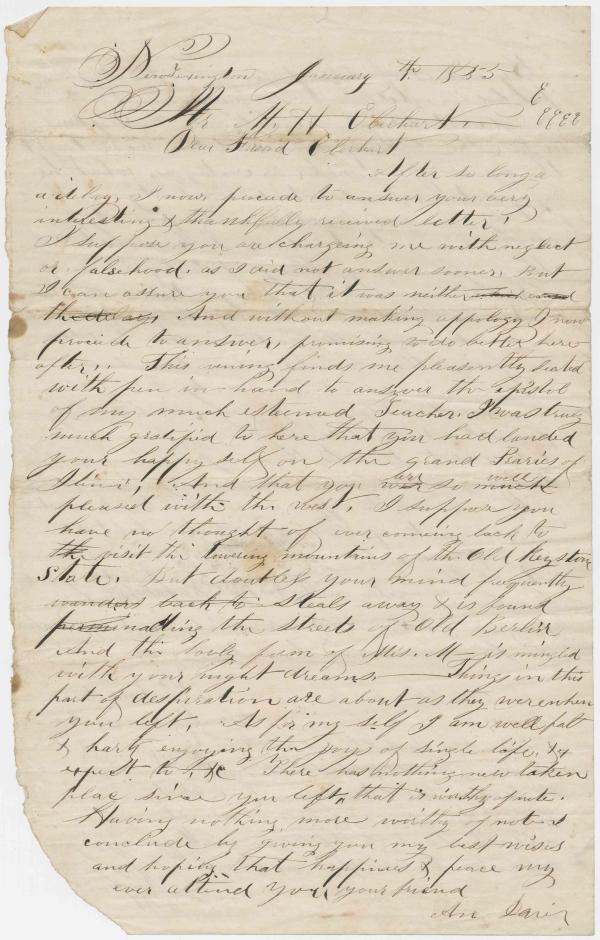 January 4th 1855
Mr M. H Eberhart. E EEEE
Dear Friend Eberhart
After so long a
a delay, I now procede to answer your very
interesting & thankfully received letter,
I suppose you are chargeing me with neglect
or falsehood. as I did not answer sooner, But
I can assure you that it was neither
the delay. And without making appology I now
procide to answer, promising to do better here
after,. This evning finds me pleasently seated
with pen in hand to answer the epistol
of my much esteemed Teacher. I was truly
much gratifid to here that you had landed
your happy self on the grand Praries of
And that you are so well
pleased with the west. I suppose you
have no thought of ever comeing back to
the visit the towering mountains of the Old Keyston
State. But doubtless your mind frequently
wanders back to Steals away & is found
the streets of Old Berlin
And the lovly form of Mis. M— is mingld
with your night dreams. Things in this
part of are about as they were when
you left, As for my self I am well fat
& harty enjoying the joys of single life, &
expect to, &c There has nothing new taken
place since you left, that is worthy of note.
Having nothing more worthy of note I
conclude by giving you my best wises
and hoping that happines & peace my
ever attend you, your friend